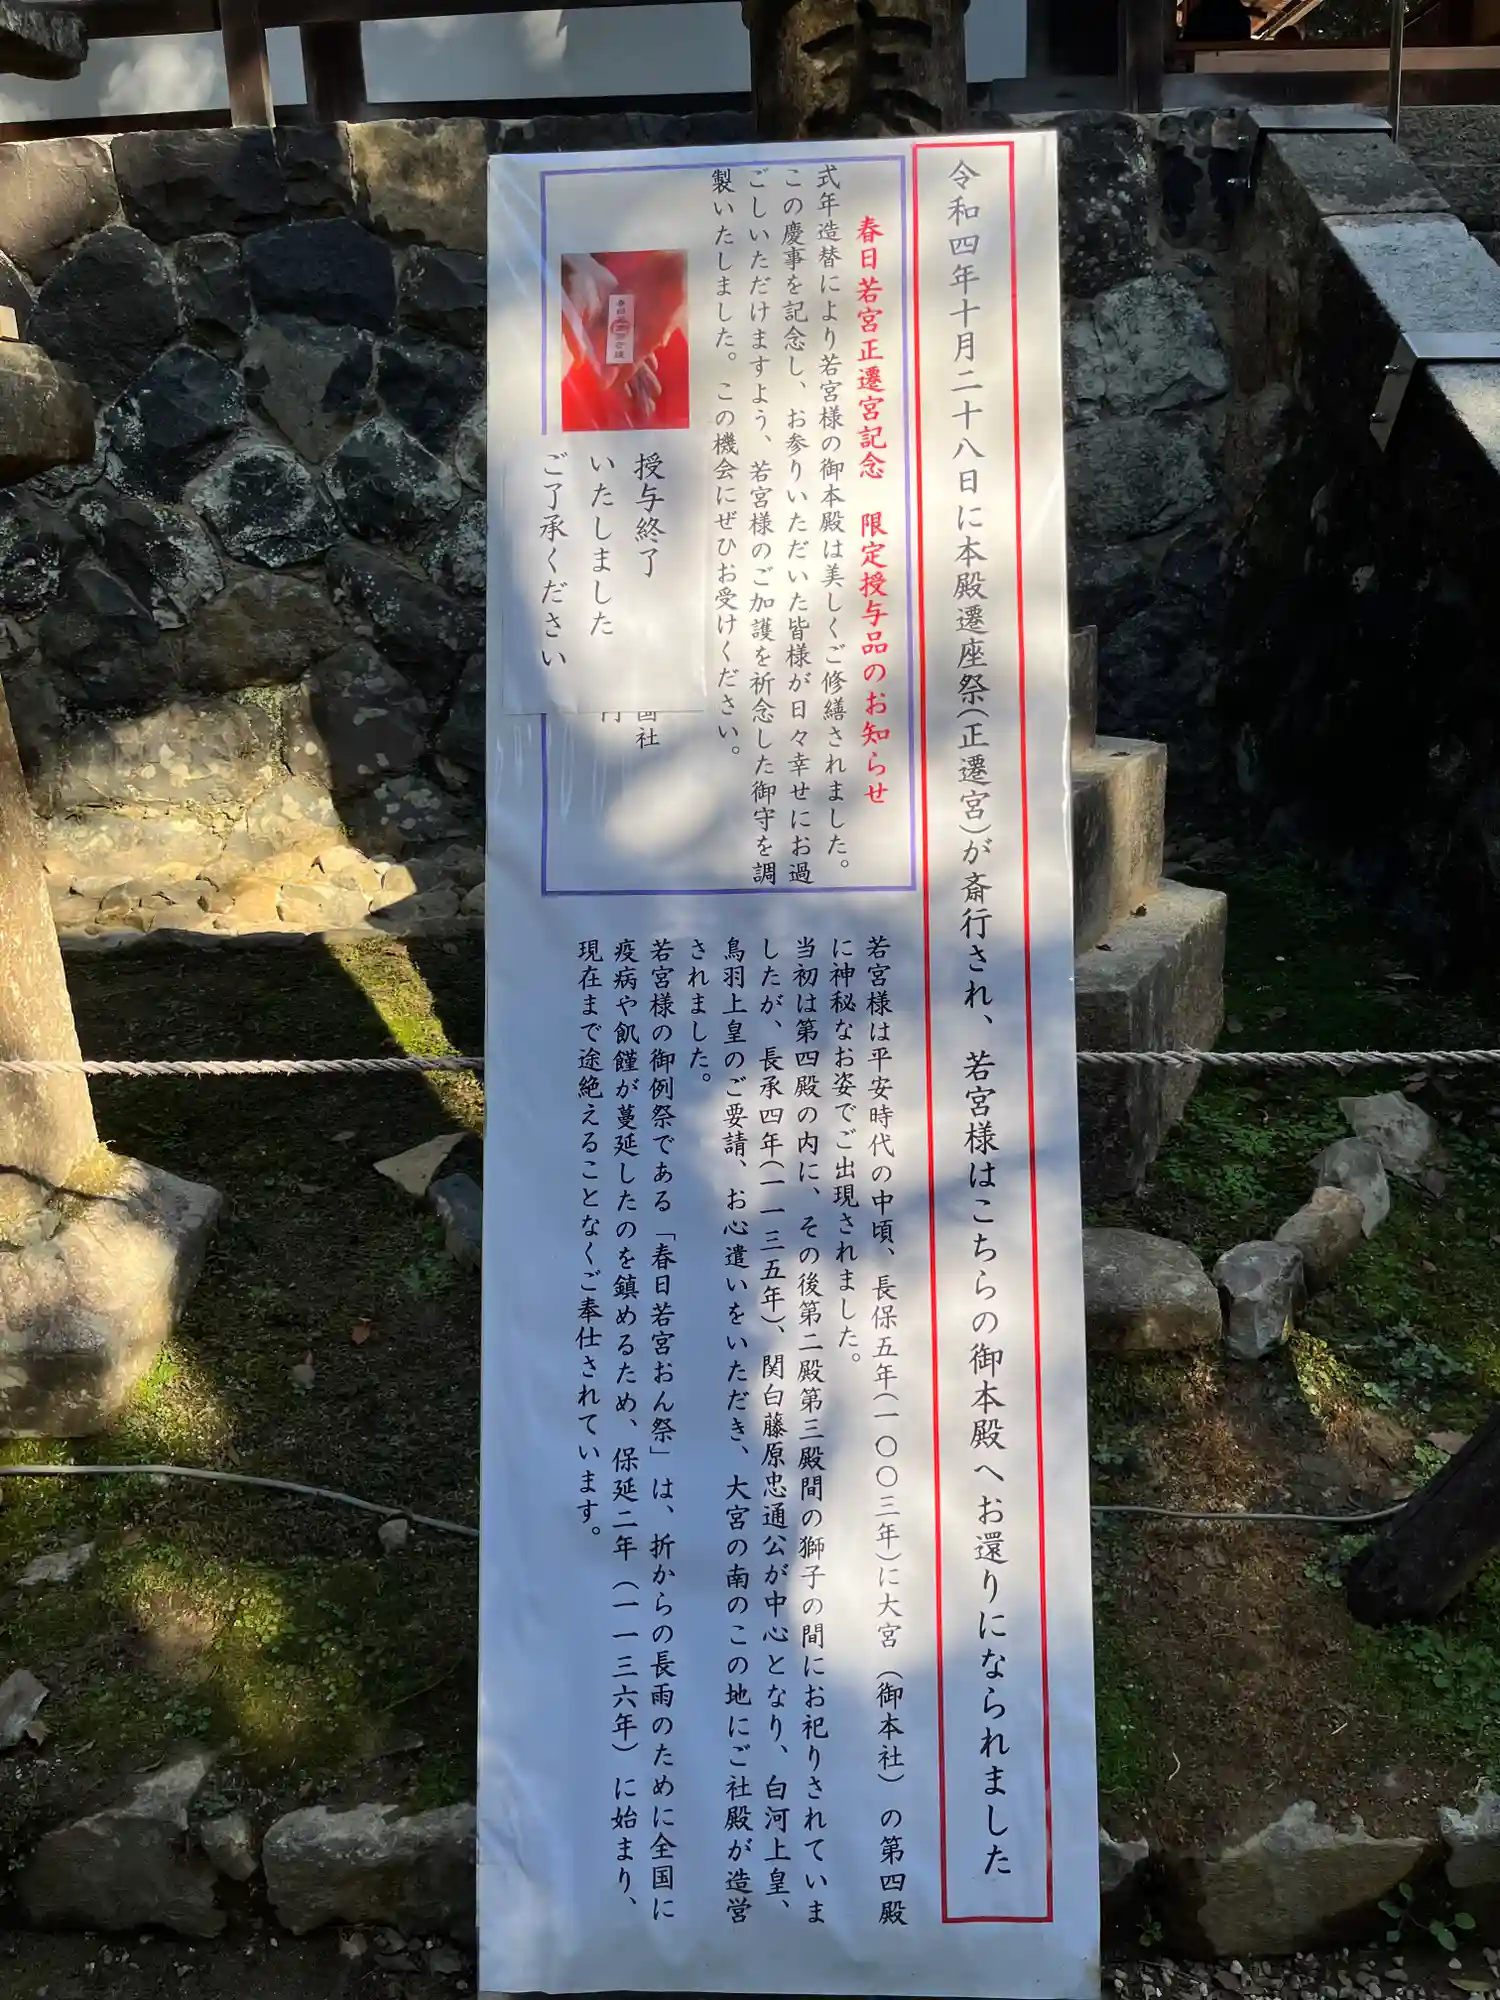 令和四年十月二十八日に本殿遷座祭(正遷宮)が斎行され、若宮様はこちらの御本殿へお還りになられました
春日若宮正遷宮記念　限定授与品のお知らせ
式年造替により若宮様の御本殿は美しくご修繕されました。
この慶事を記念し、お参りいただいた皆様が日々幸せにお過
ごしいただけますよう、若宮様のご加護を祈念した御守を調
製いたしました。この機会にぜひお受けください。
授与終了
いたしました
ご了承ください
若宮様は平安時代の中頃、長保五年(一〇〇三年)に大宮（御本社）の第四殿
に神秘なお姿でご出現されました。
当初は第四殿の内に、その後第二殿第三殿間の獅子の間にお祀りされていま
したが、長承四年(一一三五年)、関白藤原忠通公が中心となり、白河上皇、
鳥羽上皇のご要請、お心遣いをいただき、大宮の南のこの地にご社殿が造営
されました。
若宮様の御例祭である「春日若宮おん祭」は、折からの長雨のために全国に
疫病や飢饉が蔓延したのを鎮めるため、保延二年（一一三六年）に始まり、
現在まで途絶えることなくご奉仕されています。